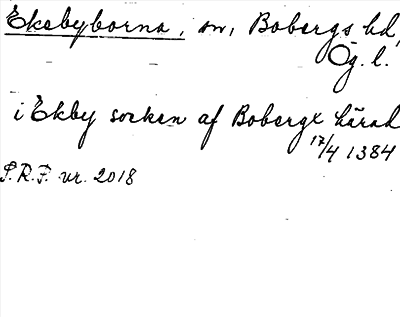 Ekebyborna, sn, Bobergs hd,
Ög. l.
i Ekby socken af Bobergx härad
17/4 1384
S.R.P. nr. 2018